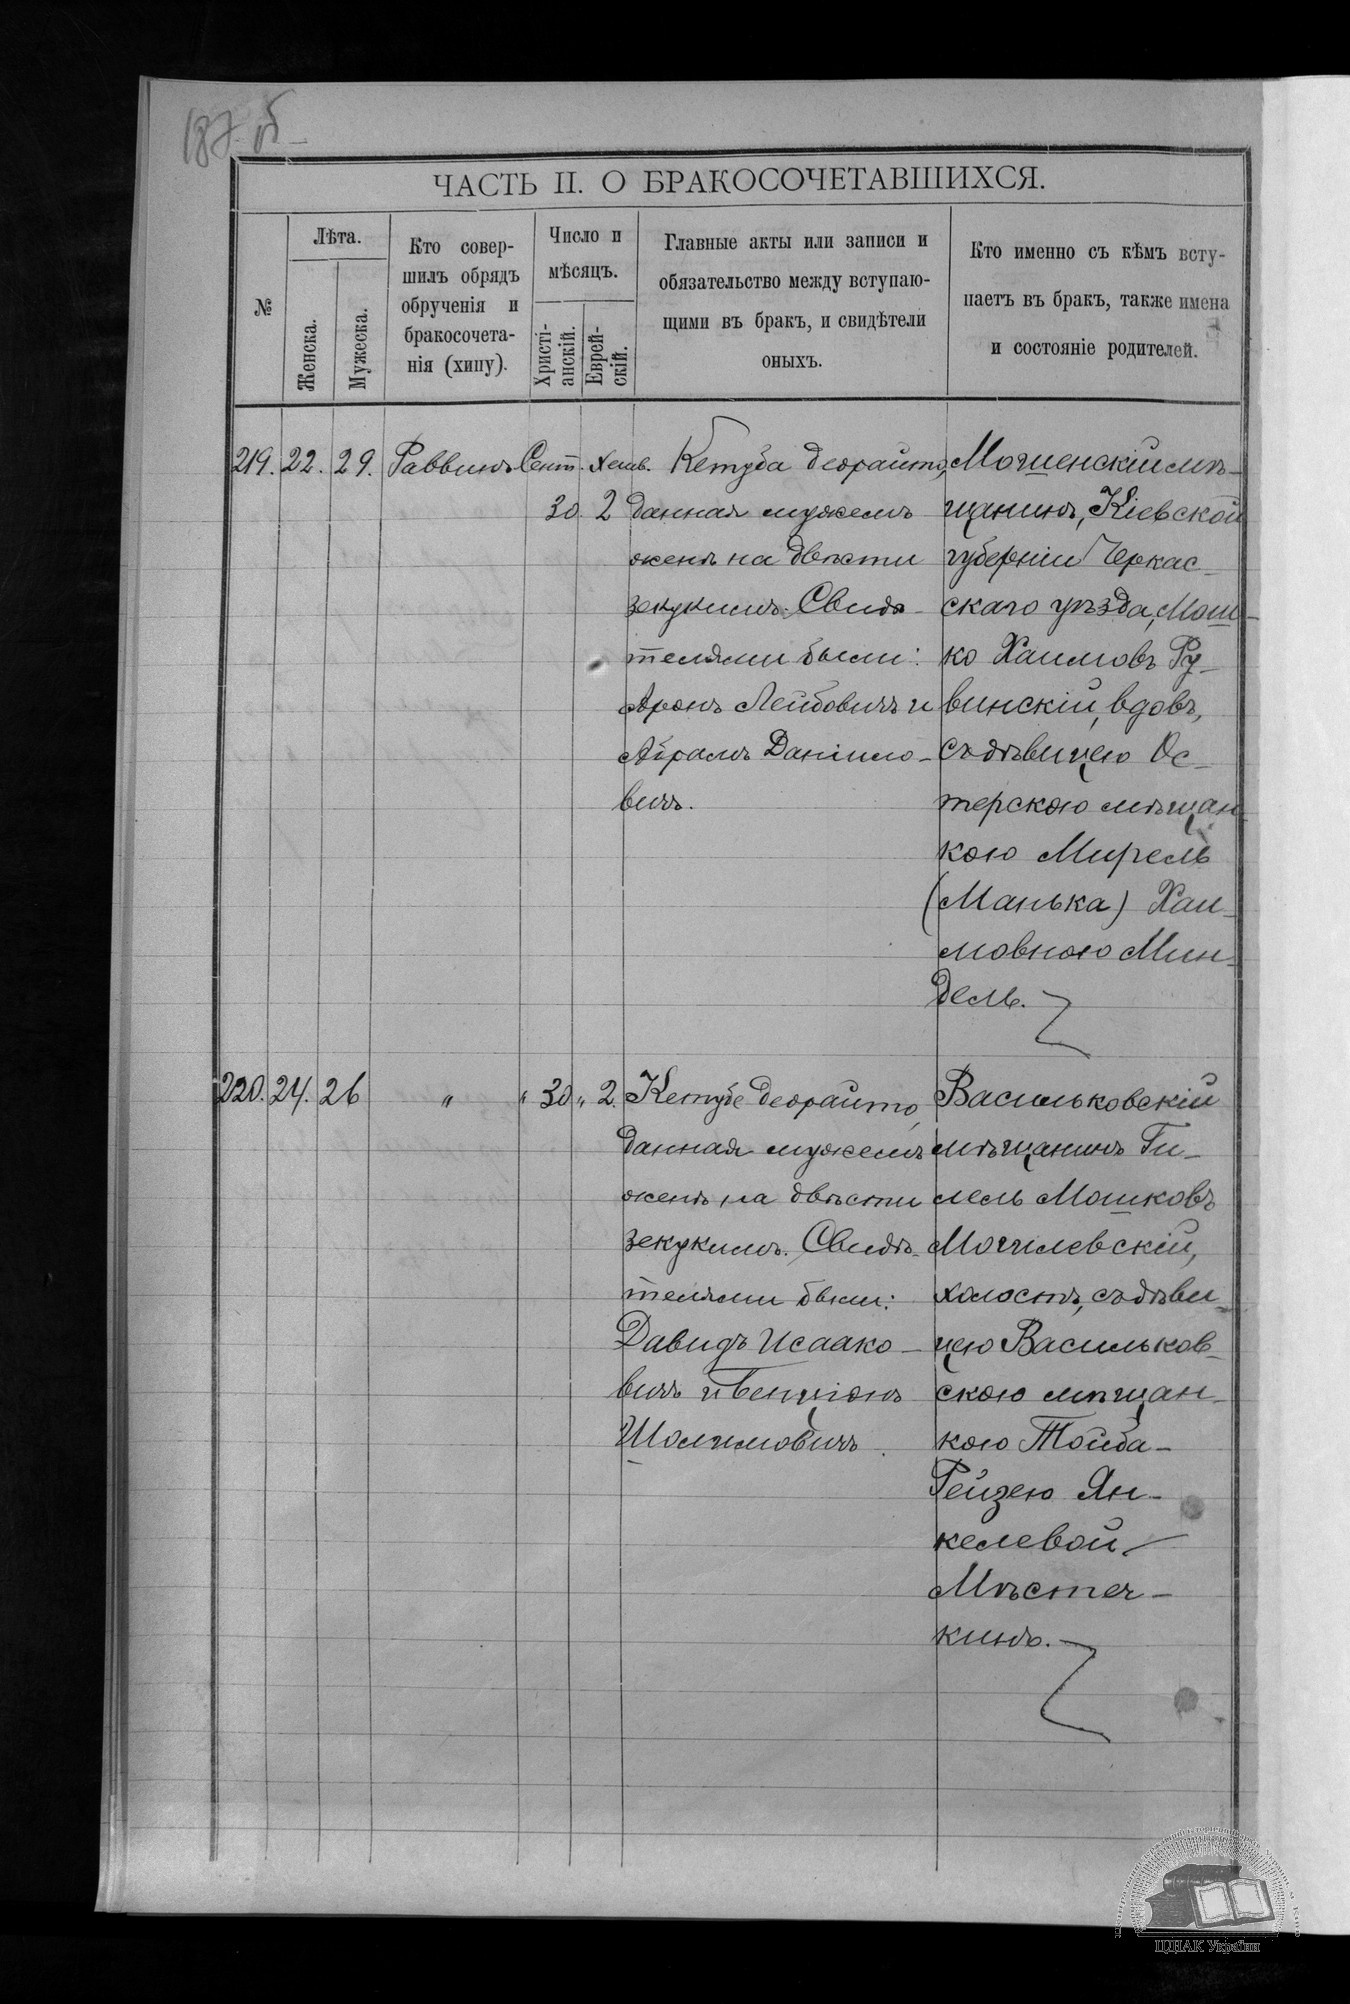 187 об
ЧАСТЬ II. О БРАКОСОЧЕТАВШИХСЯ.
№
Лѣта.
Женска.
Мужеска.
Кто совер-
шилъ обрядъ
обрученія и
бракосочета-
нія (хипу).
Число и
мѣсяцъ.
Христі-
анскій.
Еврей-
скій.
Главные акты или записи и
обязательство между вступаю-
щими въ бракъ, и свидѣтели
оныхъ.
Кто именно съ кѣмъ всту-
паетъ въ брак, также имена
и состояніе родителей.
219. 22. 29. Раввинъ Сент. Хешв.
30. 2
Кетуба деорайто,
данная мужемъ
женѣ на двѣсти
зекукимъ. Свидѣ-
телями были:
Аронъ Лейбовичъ и
Абрамъ Данило-
вичъ.
Мошенскій мѣ-
щанинъ, Кіевской
губерніи Черкас-
скаго уѣзда, Мош-
ко Хаимовъ Ру-
винскій, вдовъ,
съ дѣвицею Ос-
терскою мѣщан-
кою Мирель
(Манька) Хаи-
мовною Мин-
дель.
220. 24. 26 " " 30 " 2.
Кетубе деорайто,
данная мужемъ
женѣ на двѣсти
зекукимъ. Свидѣ-
телями были:
Давидъ Исаако-
вичъ и Бенціонъ
Шолимовичъ.
Васильковскій
мѣщанинъ Ги-
лель Мошковъ
Могилевскій,
холостъ, съ дѣви-
цею Васильков-
скою мѣщан-
кою Тойба-
Рейзею Ян-
келевой
Мѣстеч-
кинъ.
ЦДІАК України